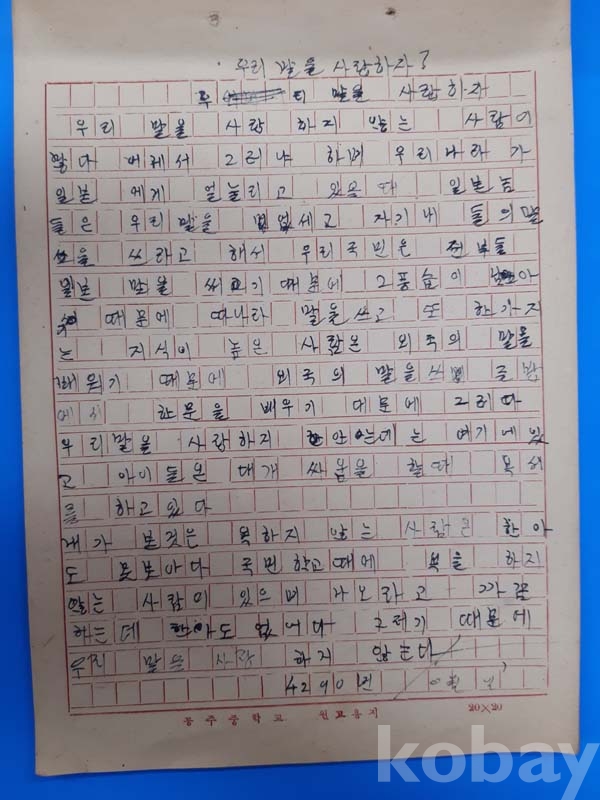 우리 말을 사랍하자?
우 리 말을 사랍하자
우리 말을 사랍 하지 않는 사람이
많다 어째서 그러냐 하며 우리나라가
일본에게 억눌리고 있을때 일본놈
들은 우리말을 없세고 자기내들의말
을 쓰라고 해서 우리국민은 전부들
일본말을 써 기때문에 그풍습이 아
때문에 따나라 말을쓰고 또 한가지
는 지식이 높은 사람은 외국의 말을
배웠기 때문에 외국의 말을쓰 글방
에서 한문을 배우기 때문에 그러다
우리말을 사랍하지 안는데는 여기에있
고 아이들은 대개 싸움을 할때 욕
를 하고있다
내가 본것은 욕하지 않는 사람은 한아
도 못보아다 국민학교때에 욕을 하지
않는 사람이 있으며 나오라고
하는데 한아도 없니다 그러기 때문에
우리 말은 사랑 하지 않는다
4290년
동주중학교 원고용지 20×20
kobay